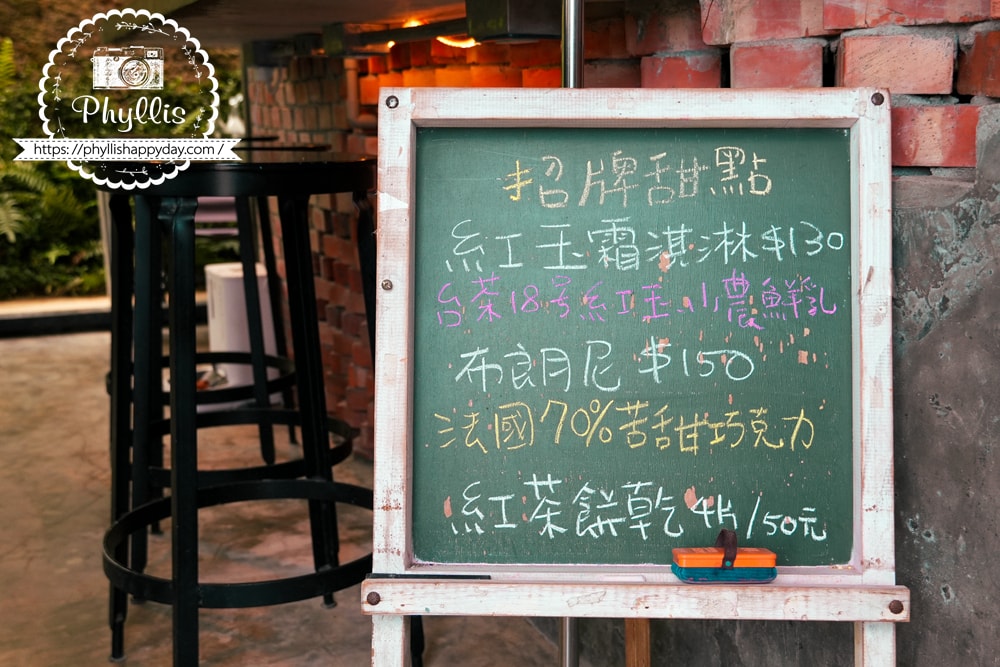 Phyllis
https://phyllishappyday.com/
招牌甜點
紅玉霜淇淋$130
台茶18号紅玉.小農鮮乳
布朗尼 $150
法國70%苦甜巧克力
紅茶餅乾 4片/50元